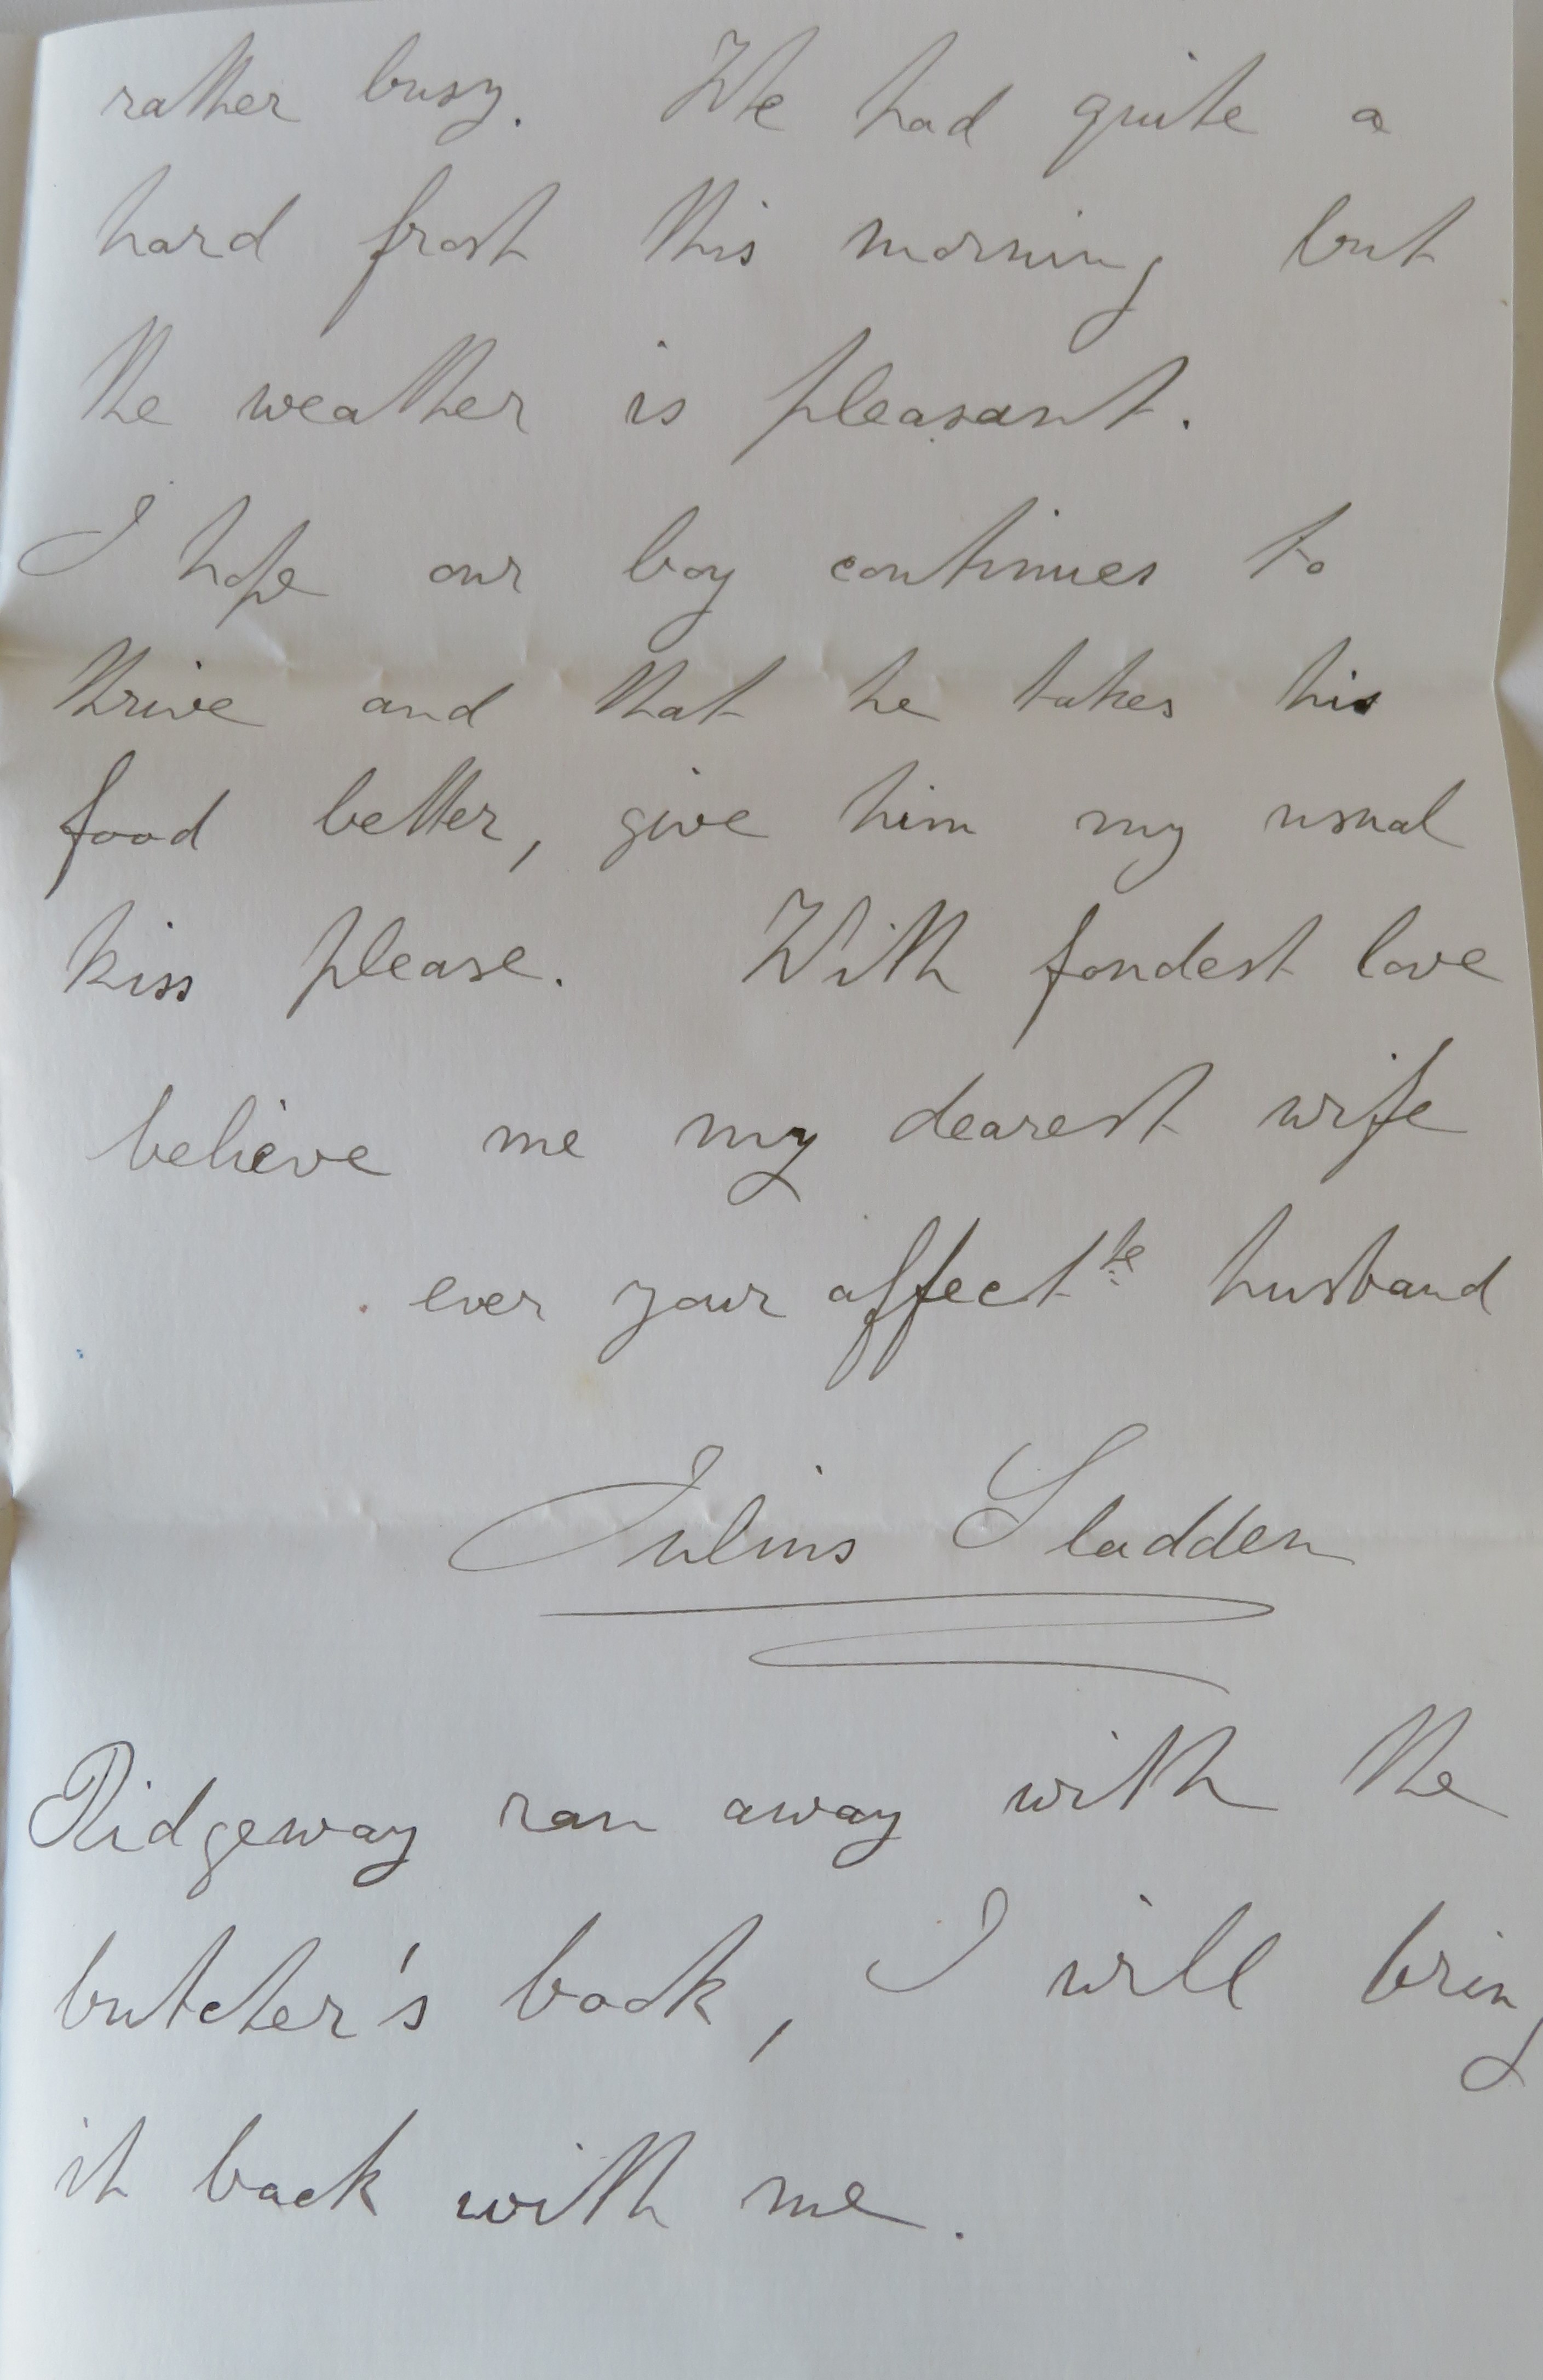 rather busy. We had quite a
hard frost this morning but
the weather is pleasant.
I hope our boy continues to
thrive and that he takes his
food better, give him my usual
kiss please. With fondest love
believe me my dearest wife
ever your affect^te husband
Julius Sladden
Ridgeway ran away with the
butcher's book, I will bring
it back with me.